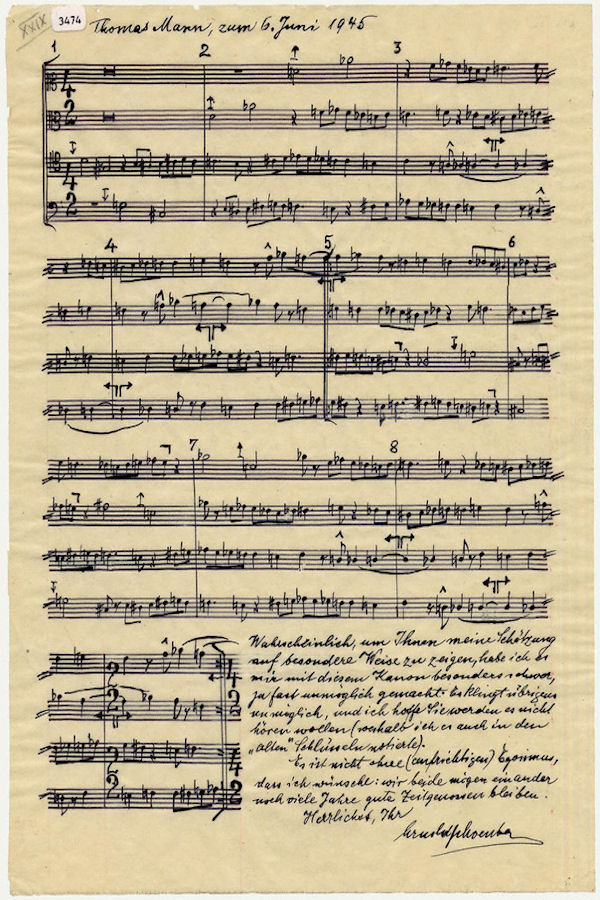 XXIX
3474
Thomas Mann, zum 6. Juni 1945
1 2 3
4 2
4 2
4 5 6
7 8
2 4 2
2 4 2
Wahrscheinlich, um Ihnen meine Schätzung
auf besondere Weise zu zeigen, habe ich es
mir mit diesem Kanon besonders schwer,
ja fast unmöglich gemacht. Es klingt übrigens
unmöglich, und ich hoffe Sie werden es nicht
hören wollen (weshalb ich es auch in den
„alten" Schlüsseln notierte).
Es ist nicht ohne (aufrichtigen) Egoismus,
dass ich wünsche: wir beide mögen einander
noch viele Jahre gute Zeitgenossen bleiben.
Herzlichst, Ihr
Arnold Schoenberg